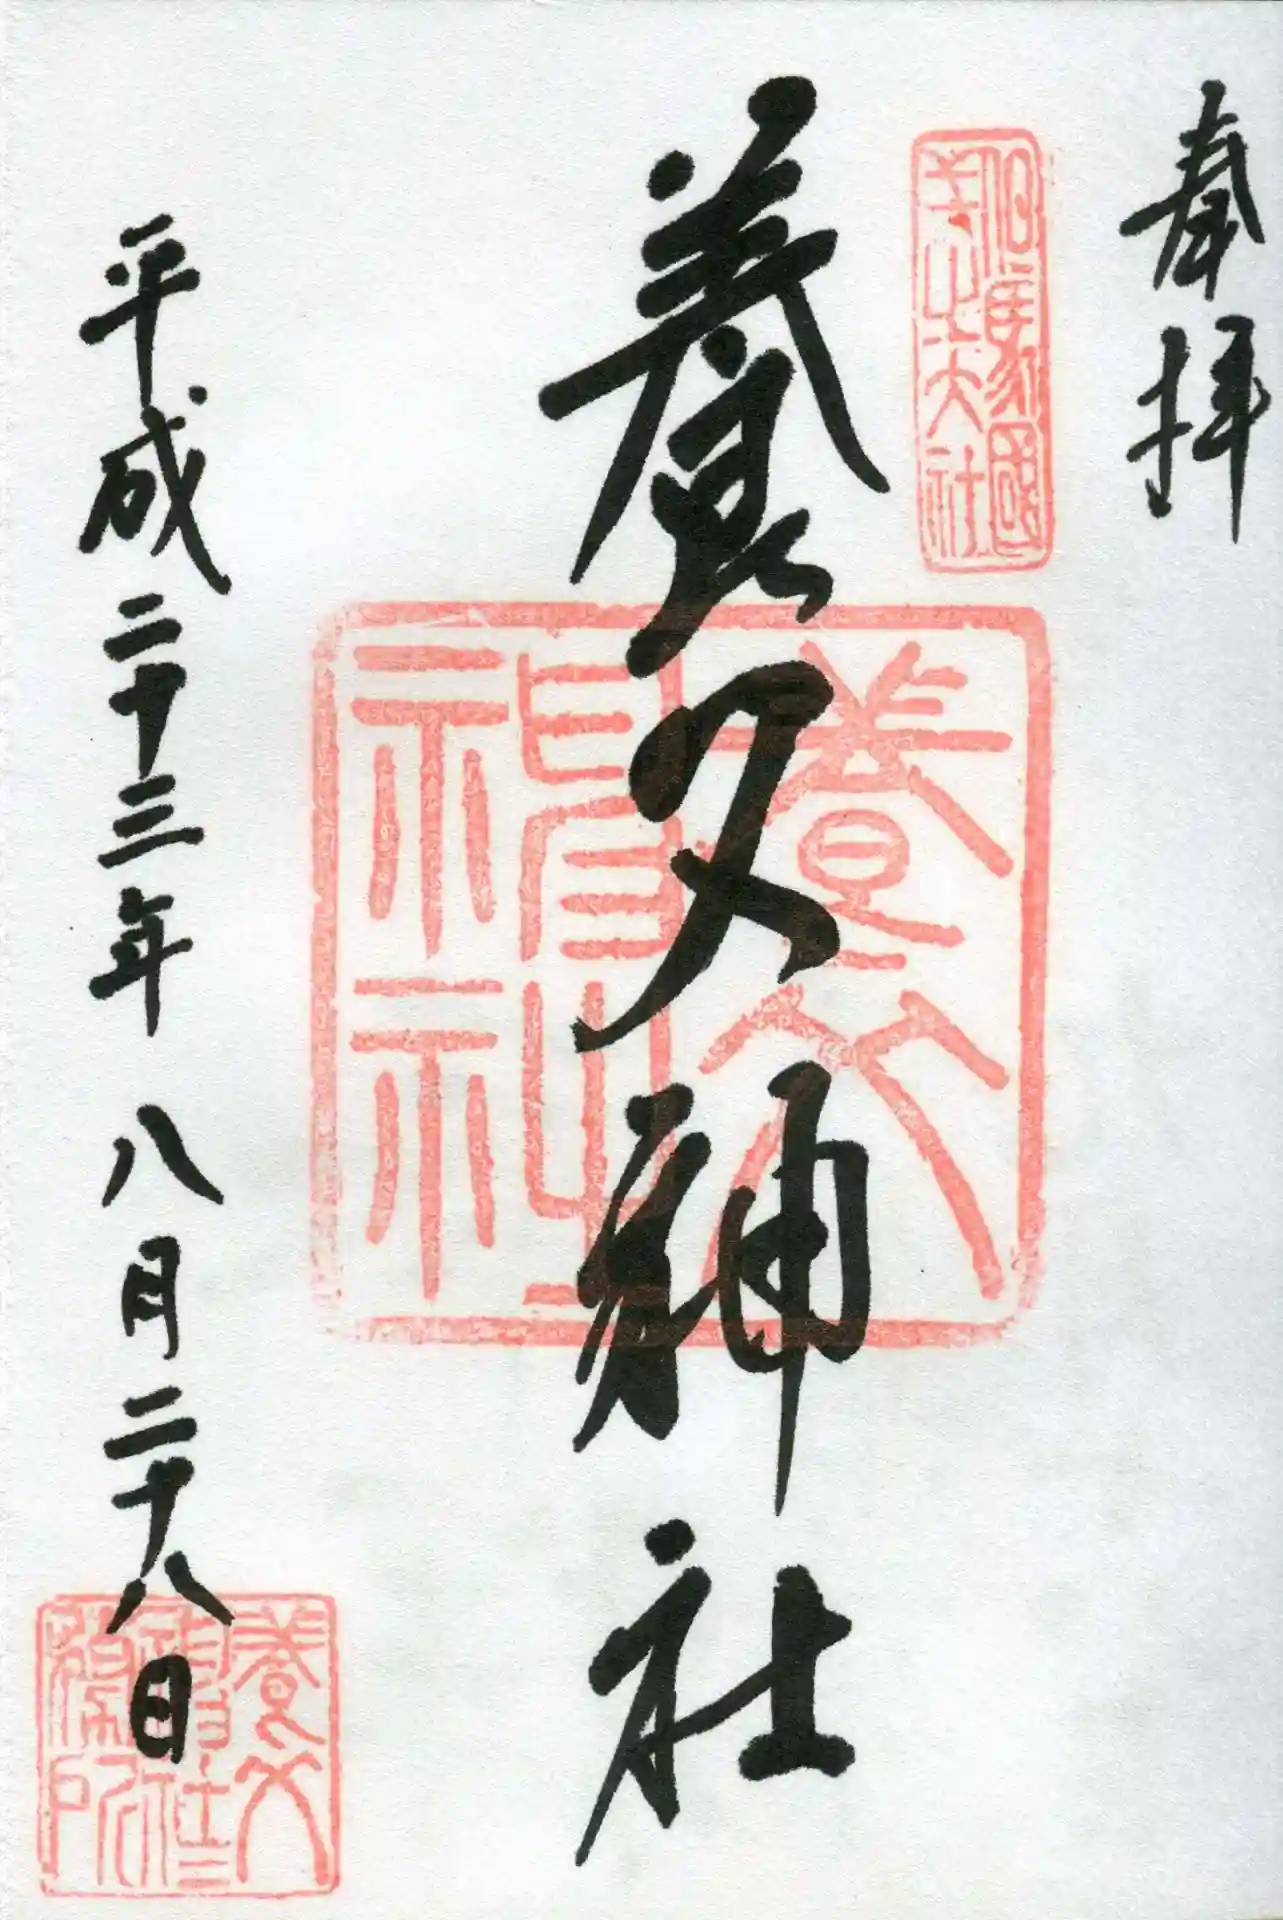 奉拝
但馬國
年山大社
養父神社
養父
神社
平成二十三年 八月二十八日
養父
神社
務所